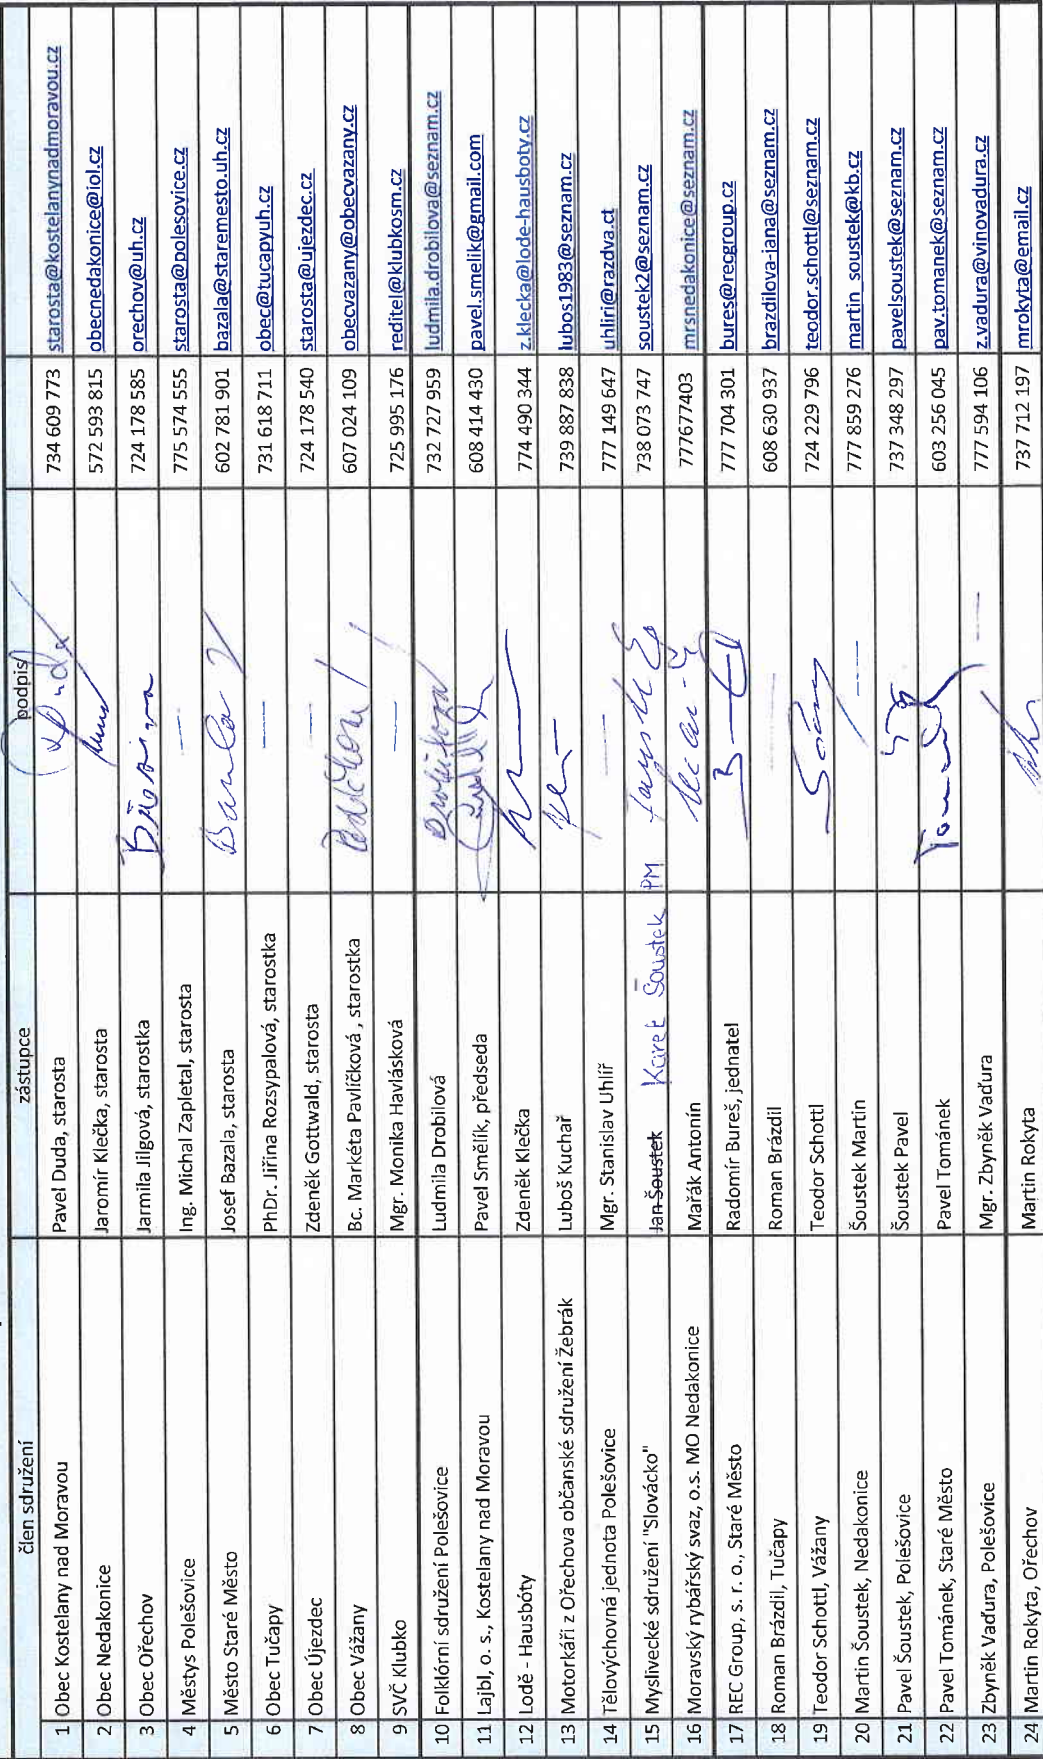 člen sdružení zástupce podpis
1 Obec Kostelany nad Moravou Pavel Duda, starosta 734 609 773 starosta@kostelanynadmoravou.cz
2 Obec Nedakonice Jaromír Klečka, starosta 572 593 815 obecnedakonice@iol.cz
3 Obec Ořechov Jarmila Jilgová, starostka 724 178 585 orechov@uh.cz
4 Městys Polešovice Ing. Michal Zapletal, starosta — 775 574 555 starosta@polesovice.cz
5 Město Staré Město Josef Bazala, starosta 602 781 901 bazala@staremesto.uh.cz
6 Obec Tučapy PhDr. Jiřina Rozsypalová, starostka — 731 618 711 obec@tucapyuh.cz
7 Obec Újezdec Zdeněk Gottwald, starosta — 724 178 540 starosta@ujezdec.cz
8 Obec Vážany Bc. Markéta Pavlíčková , starostka 607 024 109 obecvazany@obecvazany.cz
9 SVČ Klubko Mgr. Monika Havlásková — 725 995 176 reditel@klubkosm.cz
10 Folklórní sdružení Polešovice Ludmila Drobilová Drobilová 732 727 959 ludmila.drobilova@seznam.cz
11 Lajbl, o. s., Kostelany nad Moravou Pavel Smělík, předseda 608 414 430 pavel.smelik@gmail.com
12 Lodě - Hausbóty Zdeněk Klečka 774 490 344 z.klecka@lode-hausboty.cz
13 Motorkáři z Ořechova občanské sdružení Žebrák Luboš Kuchař 739 887 838 lubos1983@seznam.cz
14 Tělovýchovná jednota Polešovice Mgr. Stanislav Uhlíř — 777 149 647 uhliri@razdva.ct
15 Myslivecké sdružení "Slovácko" Jan Šoustek Karel Šoustek PM 738 073 747 soustek2@seznam.cz
16 Moravský rybářský svaz, o.s. MO Nedakonice Mařák Antonín 777677403 mrsnedakonice@seznam.cz
17 REC Group, s. r. o., Staré Město Radomír Bureš, jednatel 777 704 301 bures@recgroup.cz
18 Roman Brázdil, Tučapy Roman Brázdil — 608 630 937 brazdilova-iana@seznam.cz
19 Teodor Schottl, Vážany Teodor Schottl 724 229 796 teodor.schottl@seznam.cz
20 Martin Šoustek, Nedakonice Šoustek Martin 777 859 276 martin_soustek@kb.cz
21 Pavel Šoustek, Polešovice Šoustek Pavel 737 348 297 pavelsoustek@seznam.cz
22 Pavel Tománek, Staré Město Pavel Tománek 603 256 045 pav.tomanek@seznam.cz
23 Zbyněk Vaďura, Polešovice Mgr. Zbyněk Vaďura 777 594 106 z.vadura@vinovadura.cz
24 Martin Rokyta, Ořechov Martin Rokyta 737 712 197 mrokyta@email.cz